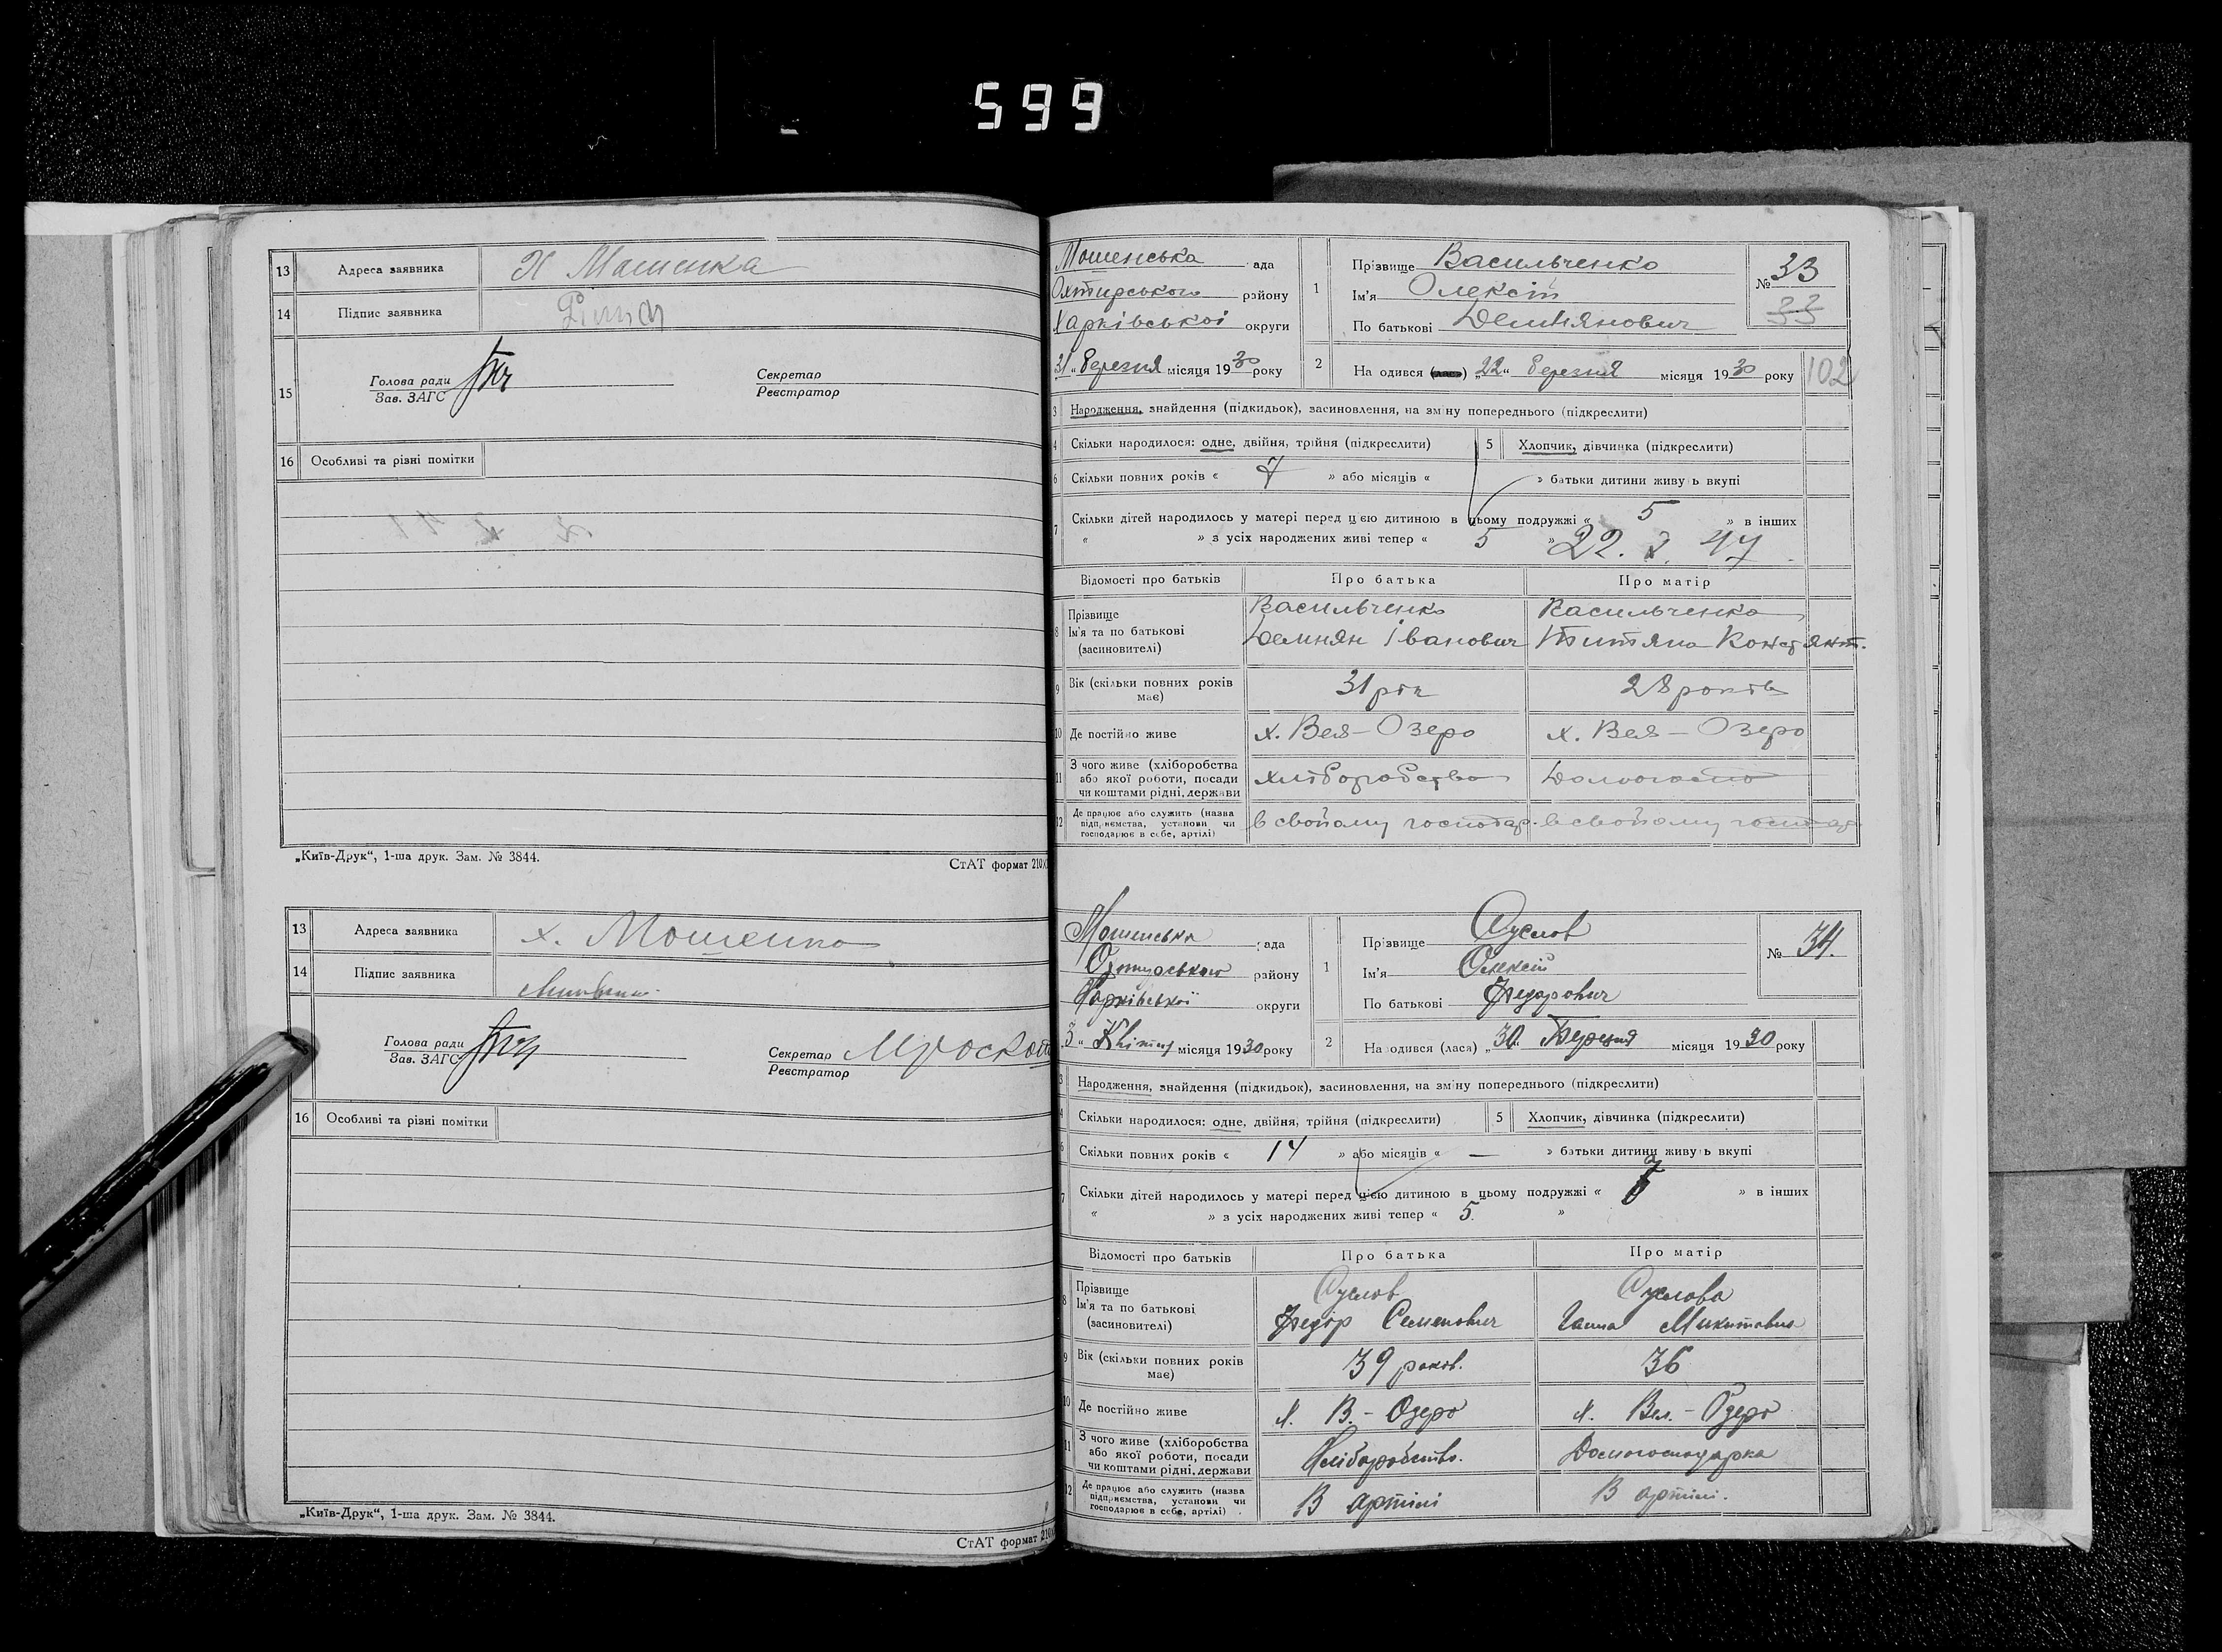 599
13 Адреса заявника Х Машенка
14 Підпис заявника
15 Голова ради
Зав. ЗАГС
Секретар
Реєстратор
16 Особливі та різні помітки
„Київ-Друк“, 1-ша друк. Зам. № 3844.
СтАТ формат 210
13 Адреса заявника х. Мошенка
14 Підпис заявника
Голова ради
Зав. ЗАГС
Секретар
Реєстратор
16 Особливі та різні помітки
„Київ-Друк“, 1-ша друк. Зам. № 3844.
СтАТ формат 210
Мошенська рада
Охтирського району
Харківської округи
31 „ березня місяця 1930 року
1 Прізвище Васильченко
Ім'я Олексій
По батькові Демнянович
№ 33
33
2 На одився (лася) „22“ березня місяця 1930 року
102
3 Народження, знайдення (підкидьок), засиновлення, на зміну попереднього (підкреслити)
4 Скільки народилося: одне, двійня, трійня (підкреслити) 5 Хлопчик, дівчинка (підкреслити)
6 Скільки повних років « 7 » або місяців « » батьки дитини живуть вкупі
7 Скільки дітей народилось у матері перед цією дитиною в цьому подружжі « 5 » в інших
« » з усіх народжених живі тепер « 5 »
Відомості про батьків Про батька Про матір
8 Прізвище Васильченко Васильченко
Ім'я та по батькові Демнян Іванович Титяна Констянт.
(засиновителі)
9 Вік (скільки повних років має) 31 рік 28 років
10 Де постійно живе х. Вел-Озеро х. Вел-Озеро
11 З чого живе (хліборобства
або якої роботи, посади
чи коштами рідні, держави хліборобство
12 Де працює або служить (назва
підприємства, установи чи
господарює в себе, артілі) в свойому господар. в свойому господар
Мошенська рада
Охтирського району
Харківської округи
„3“ Квітня місяця 1930 року
1 Прізвище Суслов
Ім'я Олексій
По батькові Федорович
№ 34.
2 Народився (лася) „30“ Березня місяця 1930 року
3 Народження, знайдення (підкидьок), засиновлення, на зміну попереднього (підкреслити)
4 Скільки народилося: одне, двійня, трійня (підкреслити) 5 Хлопчик, дівчинка (підкреслити)
6 Скільки повних років « 14 » або місяців « — » батьки дитини живуть вкупі
7 Скільки дітей народилось у матері перед цією дитиною в цьому подружжі « 7 » в інших
« » з усіх народжених живі тепер « 5. »
Відомості про батьків Про батька Про матір
8 Прізвище Суслов Суслова
Ім'я та по батькові Федір Семенович Ганна Микитовна
(засиновителі)
9 Вік (скільки повних років має) 39 років. 36
10 Де постійно живе х. В.-Озеро х. Вел.-Озеро
11 З чого живе (хліборобства
або якої роботи, посади
чи коштами рідні, держави Хліборобство. Домогосподарка
12 Де працює або служить (назва
підприємства, установи чи
господарює в себе, артілі) В артілі В артілі.